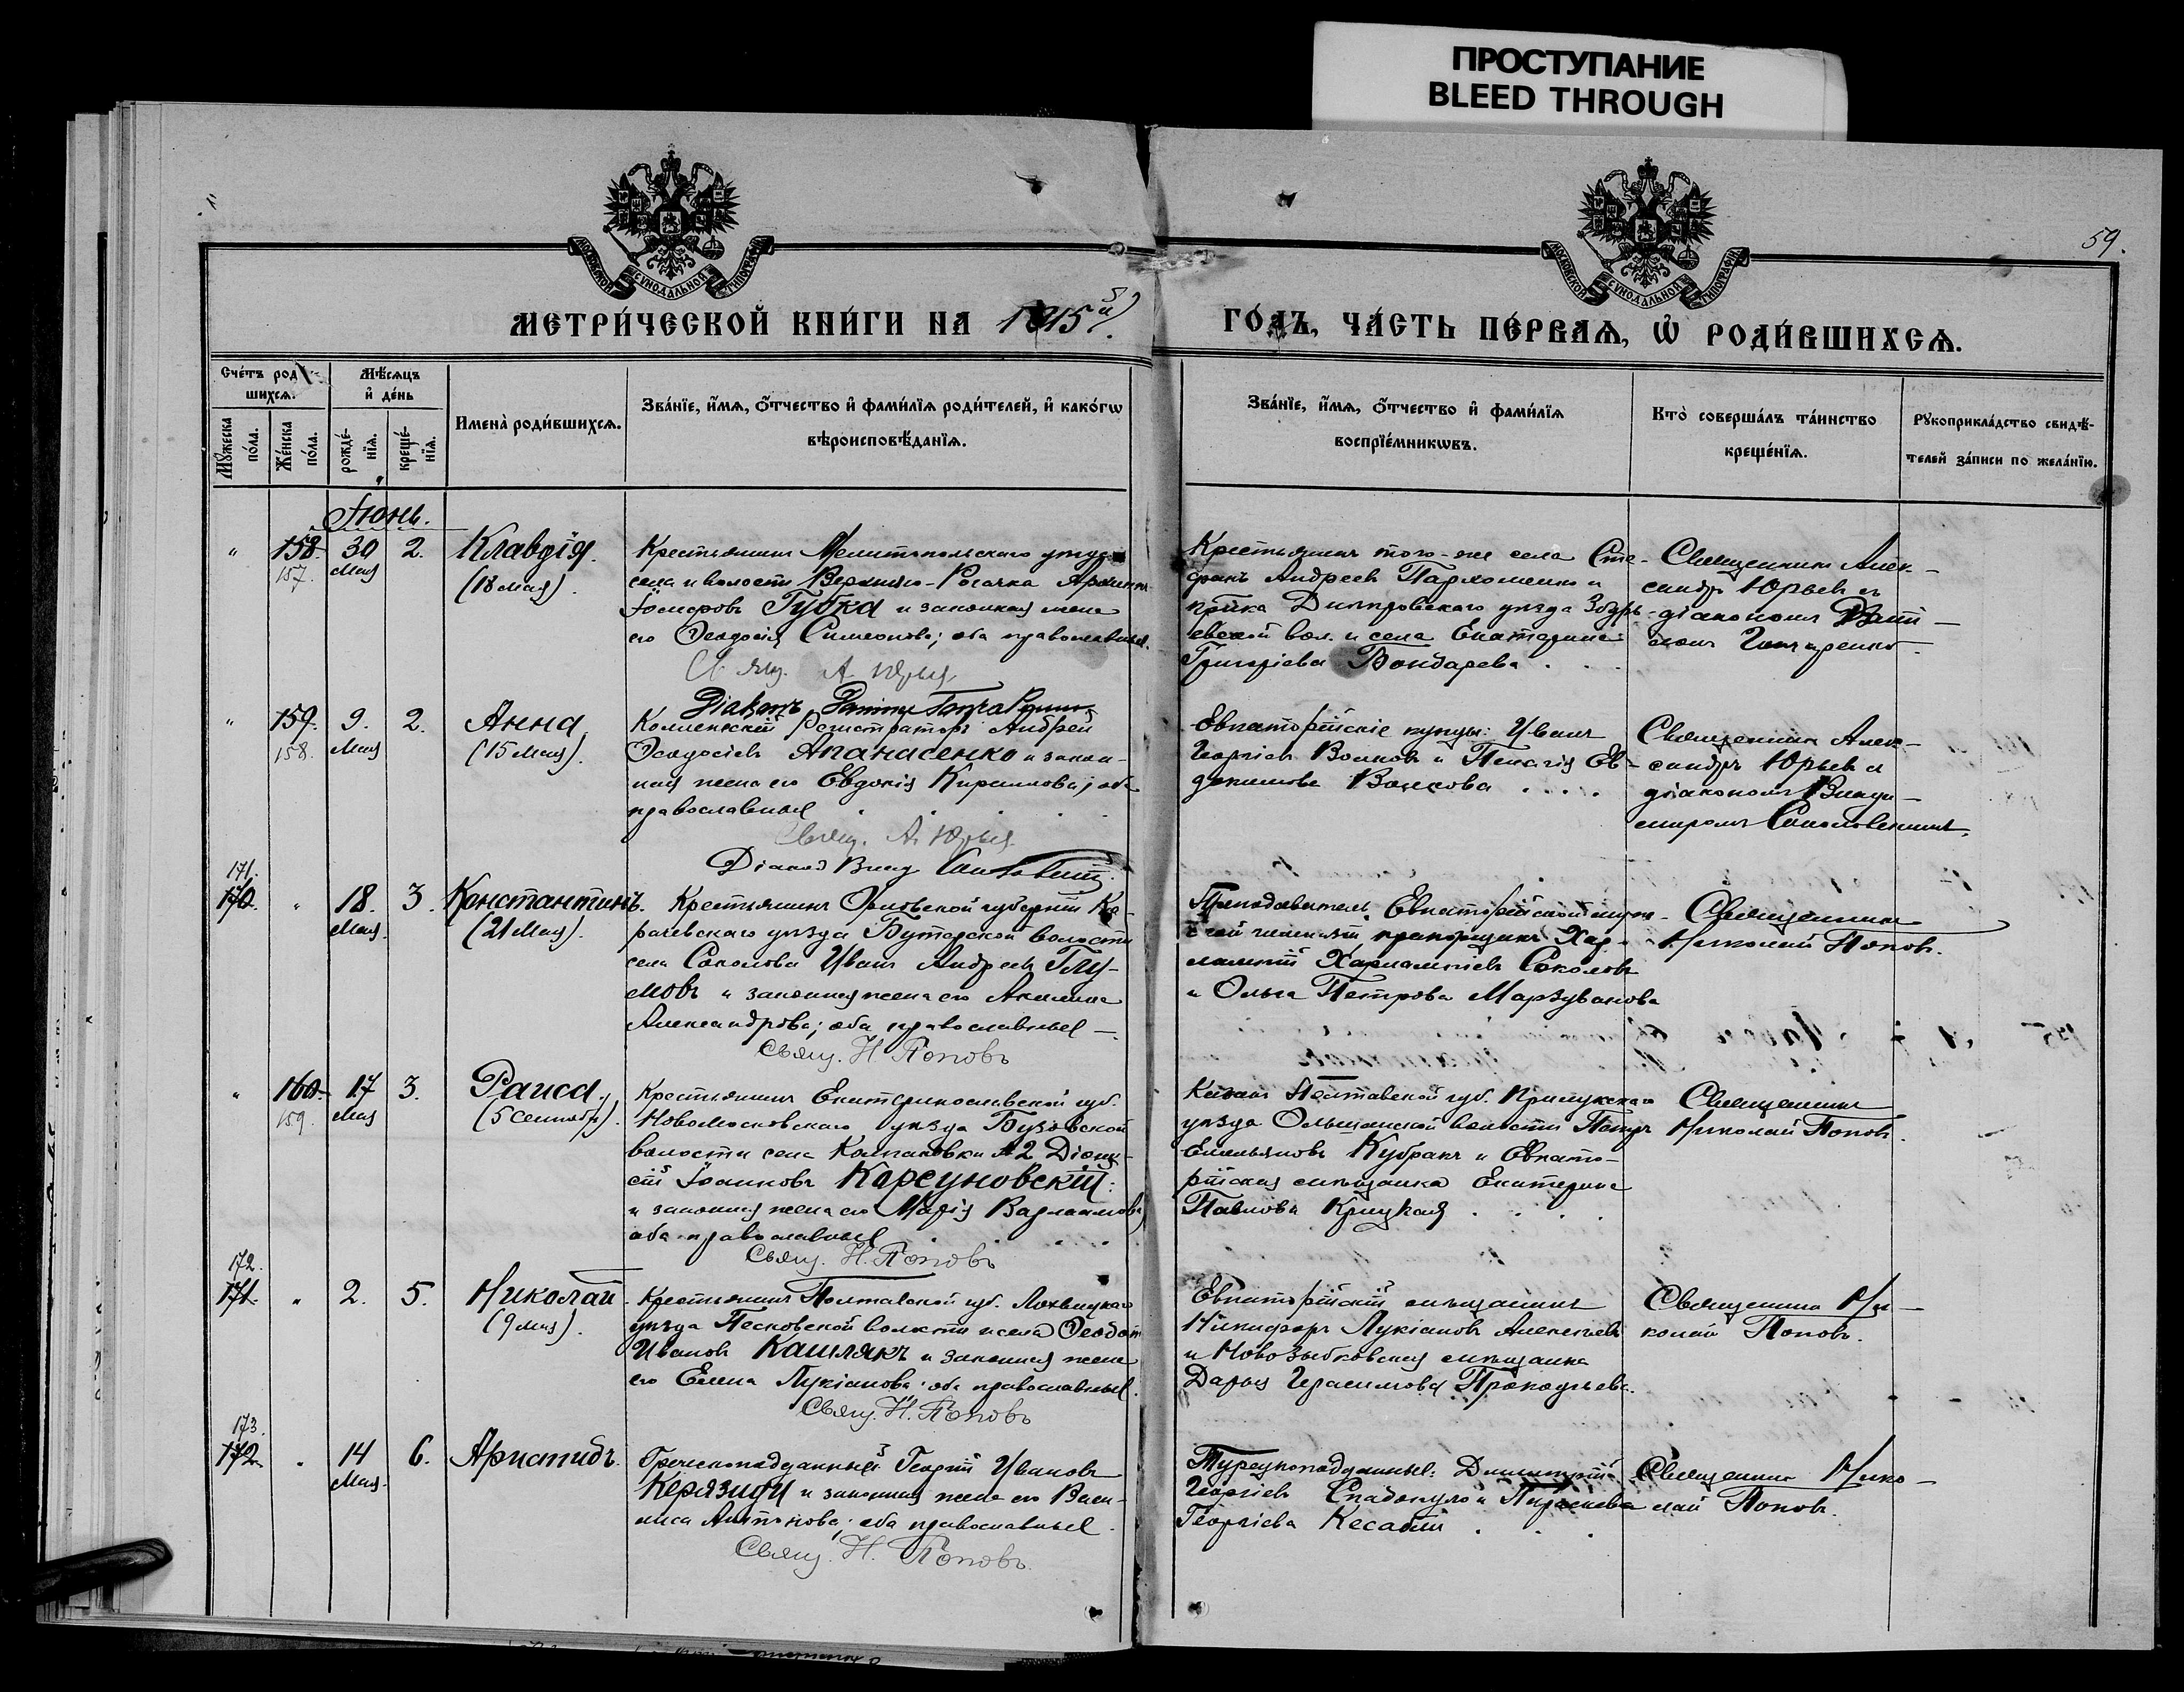 ПРОСТУПАНИЕ
BLEED THROUGH
МОСКОВСКОЙ СѴНОДАЛЬНОЙ ТИПОГРАФІИ
МОСКОВСКОЙ СѴНОДАЛЬНОЙ ТИПОГРАФІИ
59.
МЕТРИ́ЧЕСКОЙ КНИ́ГИ НА 1915й
ГО́ДЪ, ЧА́СТЬ ПЕ́РВАѦ, Ѡ҆ РОДИ́ВШИХСѦ.
Сче́тъ род шихсѧ.
Мꙋжеска по́ла.
Же́нска по́ла.
Мѣ́сѧцъ и҆ де́нь
рожде́нїѧ.
креще́нїѧ.
Имена̀ роди́вшихсѧ.
Зва́нїе, и҆́мѧ, ѻ҆́тчество и҆ фами́лїѧ роди́телей, и҆ како́гѡ
вѣроисповѣ́данїѧ.
Зва́нїе, и҆́мѧ, ѻ҆́тчество и҆ фами́лїѧ
воспрїе́мникѡвъ.
Кто̀ соверша́лъ та́инство
креще́нїѧ.
Рꙋкоприкла́дство свидѣ́-
телей за́писи по жела́нїю.
Іюнь.
" 158. 157. 30 Мая 2. Клавдія. (18 мая).
Крестьянинъ Мелитопольскаго уѣзда
села и волости Верхняго-Рогачка
Губка и законная жена
его Ѳеодосія Симеонова; оба православные.
Свящ. А. Юрьев
Діаконъ
Крестьянинъ того-же села Сте-
фанъ Андреевъ Пархоменко и
Днѣпровскаго уѣзда Збурь-
евской вол. и села Екатерина
Григоріева Бондарева . . .
Священникъ Алек-
сандръ Юрьевъ съ
діакономъ
" 159. 158. 9. Мая 2. Анна (15 Мая).
Коллежскій Регистраторъ Андрей
Ѳеодосіевъ Апанасенко и закон-
ная жена его Евдокія Кириллова; оба
православные
Свящ. А. Юрьев
Діакон
Евпаторійскіе купцы: Иванъ
Георгіевъ Волковъ и Пелагія Ев-
докимова Волкова . . . .
Священникъ Алек-
сандръ Юрьевъ съ
діакономъ Влади-
міромъ
171. 170. " 18. Мая. 3. Константинъ. (21 Мая).
Крестьянинъ Орловской губерніи Ка-
рачевскаго уѣзда Бутерской волости
села Соколова Иванъ Андреевъ Глу-
мовъ и законная жена его Акилина
Александрова; оба православные —.
Свящ. Н. Поповъ
Преподаватель Евпаторійской муж-
ской гимназіи, прапорщикъ Хар-
лампій Харлампіевъ Соколовъ
и Ольга Петрова Марзуванова
Священникъ
Николай Поповъ.
" 160. 159. 17 Мая 3. Раиса. (5 Сентября).
Крестьянинъ Екатеринославской губ.
Новомосковскаго уѣзда Бузовской
волости села Колпаковки №2 Діони-
сій Іоанновъ Карсуновскій
и законная жена его Марія Варлаамова,
оба православные . . .
Свящ. Н. Поповъ
Казакъ Полтавской губ. Прилукскаго
уѣзда Ольшанской волости Петръ
Емельяновъ Кубракъ и Евпато-
рійская мѣщанка Екатерина
Павлова Крицкая . . . .
Священникъ
Николай Поповъ.
172. 171. " 2. 5. Николай (9 мая).
Крестьянинъ Полтавской губ. Лохвицкаго
уѣзда Песковской волости и села Ѳеодотъ
Ивановъ Кашлякъ и законная жена
его Елена Лукіанова; оба православные.
Свящ. Н. Поповъ
Евпаторійскій мѣщанинъ
Никифоръ Лукіановъ Алексѣевъ
и Новозыбковская мѣщанка
Дарья Герасимова Прокофьева.
Священникъ Ни-
колай Поповъ.
173. 172. " 14 Мая. 6. Аристидъ.
Греческоподданный Георгій Ивановъ
Керязиди и законная жена его Васи-
лиса Антонова; оба православные.
Свящ. Н. Поповъ.
Турецкоподданные: Димитрій
Георгіевъ Спадопуло и Параскева
Георгіева Кесабли . . .
Священникъ Нико-
лай Поповъ.